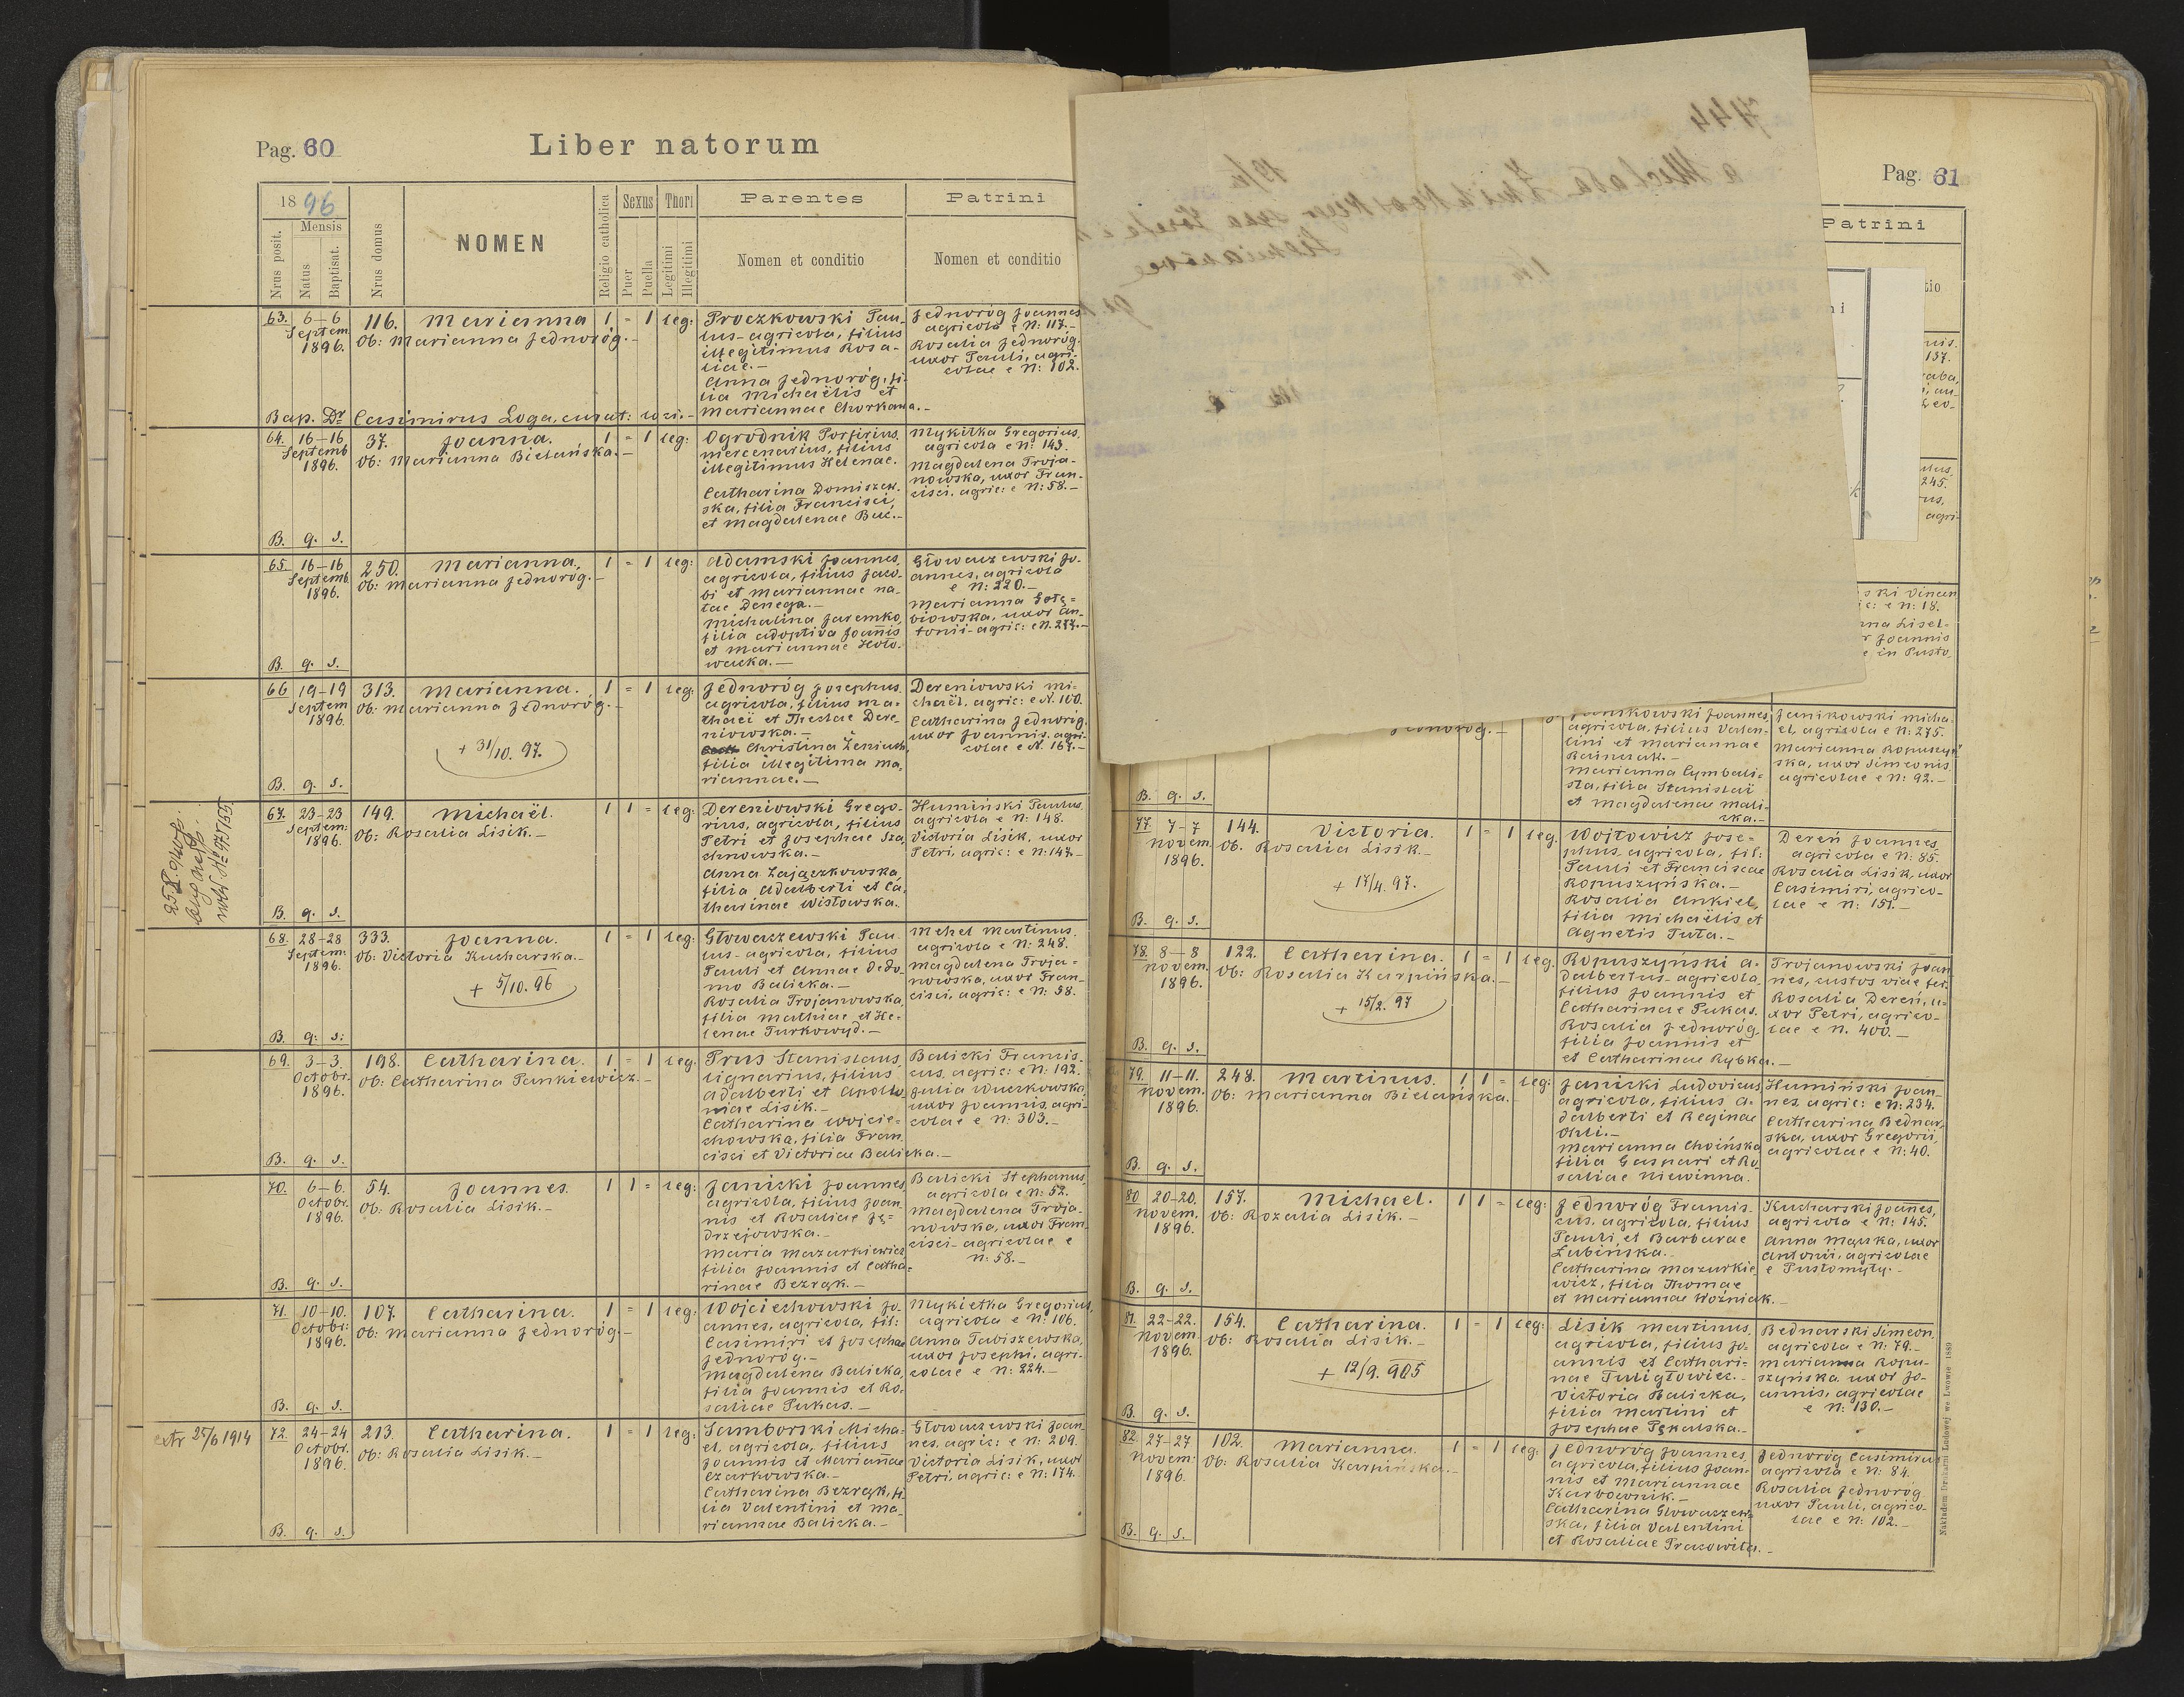 Pag. 60
Liber natorum
1896
Mensis
Nrus posit.
Natus
Baptisat.
Nrus domus
NOMEN
Religio catholica
Sexus
Puer
Puella
Thori
Legitimi
Illegitimi
Parentes
Nomen et conditio
Patrini
Nomen et conditio
63. 6–6 Septem 1896. 116. Marianna 1 = 1 leg:
Ob: Marianna Jednoróg.–
Proczkowski Pau-
lus–agricola, filius
illegitimus Rosa-
liae.–
Anna Jednoróg, fi-
lia Michaëlis et
Mariannae Chorkawa.–
Jednoróg Joannes
agricola e N: 117.–
Rosalia Jednoróg
uxor Pauli, agri-
colae e N: 102.
Bap. Dr Casimirus Loga, curat: loci.–
64. 16–16 Septemb 1896. 37. Joanna. 1 = 1 leg:
Ob: Marianna Bielańska.–
Ogrodnik Porfirius,
mercenarius, filius
illegitimus Helenae.
Catharina Domiszew-
ska, filia Francisci
et Magdalenae Buć.–
Mykitka Gregorius,
agricola e N: 143.
Magdalena Troja-
nowska, uxor Fran-
cisci, agric: e N: 58.–
B. q. s.
65. 16–16 Septemb. 1896. 250. Marianna, 1 = 1 leg:
Ob: Marianna Jednoróg.–
Adamski Joannes,
agricola, filius Jaco-
bi et Mariannae na-
tae Denega.–
Michalina Jaremko,
filia adoptiva Joannis
et Mariannae Hoło-
wacka.–
Głowaczewski Jo-
annes, agricola
e N: 220.–
Marianna Gołę-
biowska, uxor An-
tonii–agric: e N. 277.–
B. q. s.
66 19–19 Septem 1896. 313. Marianna. 1 = 1 leg:
Ob: Marianna Jednoróg.–
+ 31/10. 97.
Jednoróg Josephus,
agricola, filius Ma-
thaei et Theclae Dere-
niowska.–
Christina Żeniuch,
filia illegitima Ma-
riannae.–
Dereniowski Mi-
chaël, agric: e N. 100.
Catharina Jednoróg,
uxor Joannis, agri-
colae e N. 167.–
B. q. s.
67. 23–23 Septem: 1896. 149. Michaël. 1 1 = leg:
Ob: Rosalia Lisik.–
Dereniowski Grego-
rius, agricola, filius
Petri et Josephae Sta-
chnowska.–
Anna Zajączkowska,
filia Adalberti et Ca-
tharinae Wisłowska.
Humiński Paulus,
agricola e N: 148.
Victoria Lisik, uxor
Petri, agric: e N: 147.–
B. q. s.
68. 28–28 Septem: 1896. 333. Joanna. 1 = 1 leg:
Ob: Victoria Kucharska.–
+ 5/10. 96
Głowaczewski Pau-
lus–agricola, filius
Pauli et Annae de do-
mo Balicka.–
Rosalia Trojanowska,
filia Mathiae et He-
lenae Turkowyd.–
Mehel Martinus,
agricola e N: 248.
Magdalena Troja-
nowska, uxor Fran-
cisci, agric: e N: 58.
B. q: s:
69. 3–3. Octobr. 1896. 198. Catharina. 1 = 1 leg:
Ob: Catharina Pankiewicz.–
Prus Stanislaus,
lignarius, filius
Adalberti et Apollo-
niae Lisik.–
Catharina Wojcie-
chowska, filia Fran-
cisci et Victoriae Balicka.–
Balicki Francis-
cus, agric: e N: 192.
Julia Wuczkowska,
uxor Joannis, agri-
colae e N: 303.–
B. q. s.
70. 6–6. Octobr. 1896. 54. Joannes. 1 1 = leg:
Ob: Rosalia Lisik.–
Janicki Joannes,
agricola, filius Joan-
nis et Rosaliae Ję-
drzejowska.–
Maria Mazurkiewicz
filia Joannis et Catha-
rinae Bezrąk.–
Balicki Stephanus,
agricola e N: 52.
Magdalena Troja-
nowska, uxor Fran-
cisci–agricolae e
N: 58.–
B. q. s.
71. 10–10. Octobr: 1896. 107. Catharina. 1 = 1 leg:
Ob: Marianna Jednoróg.–
Wojciechowski Jo-
annes, agricola, fil:
Casimiri et Josephae
Jednoróg.–
Magdalena Balicka,
filia Joannis et Ro-
saliae Pukas.–
Mykietka Gregorius,
agricola e N: 106.
Anna Tabiszewska,
uxor Josephi, agri-
colae e N: 224.–
B. q. s.
extr 25/6 1914
72. 24–24 Octobr. 1896. 213. Catharina. 1 = 1 leg:
Ob: Rosalia Lisik.–
Samborski Micha-
el, agricola, filius
Joannis et Mariannae
Czarkowska.–
Catharina Bezrąk, fi-
lia Valentini et Ma-
riannae Balicka.–
Głowaczewski Joan-
nes, agric: e N: 209.
Victoria Lisik, uxor
Petri, agric: e N: 174.
B. q. s.
Pag. 61
Patrini
744
ski Vincen
e N: 18.
nna Lisel-
Joannis
in Pusto
Jednoróg.–
Janikowski Joannes,
agricola, filius Valen-
tini et Mariannae
Rainczak.–
Marianna Cymbali-
sta, filia Stanislai
et Magdalenae Mali-
cka.–
Janikowski Micha-
el, agricola e N: 275.
Marianna Kopuszyń-
ska, uxor Simeonis,
agricolae e N: 92.–
B. q. s.
77. 7–7 Novem. 1896. 144. Victoria. 1 = 1 leg.
Ob. Rosalia Lisik.–
+ 17/4. 97.
Wojtowicz Jose-
phus, agricola, fil:
Pauli et Franciscae
Kopuszyńska.–
Rosalia Ankiel,
filia Michaëlis et
Agnetis Tuta.–
Dereń Joannes,
agricola e N: 85.
Rosalia Lisik, uxor
Casimiri, agrico-
lae e N: 151.–
B. q. s.
78. 8–8 Novem. 1896. 122. Catharina. 1 = 1 leg.
Ob: Rosalia Karpińska.–
+ 15/2. 97
Kopuszyński A-
dalbertus–agricola,
filius Joannis et
Catharinae Pukas.
Rosalia Jednoróg
filia Joannis et
et Catharinae Rybka.–
Trojanowski Joan-
nes, custos viae fer.
Rosalia Dereń, u-
xor Petri, agrico-
lae e N. 400.–
B. q. s.
79. 11–11. Novem. 1896. 248. Martinus. 1 1 = leg:
Ob: Marianna Bielańska.–
Janicki Ludovicus,
agricola, filius A-
dalberti et Reginae
Ohli.–
Marianna Choińska
filia Gaspari et Ro-
saliae Niewinna.
Humiński Joan-
nes, agric: e N: 234.
Catharina Bednar-
ska, uxor Gregorii,
agricolae e N: 40.
B. q. s.
80 20–20. Novem. 1896. 157. Michael. 1 1 = leg:
Ob: Rozalia Lisik.–
Jednoróg Francis-
cus, agricola, filius
Pauli et Barbarae
Łubińska.–
Catharina Mazurkie-
wicz, filia Thomae
et Mariannae Woźniak.–
Kucharski Joannes,
agricola e N: 145.
Anna Mayka, uxor
Antonii, agricolae
e Pustomyty.–
B. q. s.
81. 22–22. Novem. 1896. 154. Catharina. 1 = 1 leg:
Ob: Rosalia Lisik.–
+ 12/9. 905
Lisik Martinus,
agricola, filius Jo-
annis et Cathari-
nae Tuligłowicz.–
Victoria Balicka,
filia Martini et
Josephae Pękalska.–
Bednarski Simeon,
agricola e N: 79.–
Marianna Kopu-
szyńska uxor Jo-
annis, agricolae
e N: 130.–
B. q. s.
82. 27–27 Novem: 1896. 102. Marianna. 1 = 1 leg:
Ob: Rosalia Karpińska.–
Jednoróg Joannes,
agricola, filius Joan-
nis et Mariannae
Karbownik.–
Catharina Głowaczew-
ska, filia Valentini
et Rosaliae Prakowita.–
Jednoróg Casimirus
agricola e N: 84.
Rosalia Jednoróg
uxor Pauli, agrico-
lae e N: 102.–
B. q. s.
Nakładem Drukarni Ludowej we Lwowie 1889